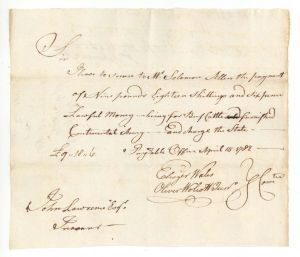 Sir
Please to secure to Mr. Solomon Allen the payment
of Nine pounds Eighteen Shillings and Sixpence
Lawful Money – being for Beef Cattle furnished
Continental Army – and charge the State –
£9.18.6 Pay Table Office April 15 1782
Eleazer Wales
Oliver Wolcott Junr Comtee
John Lawrence Esqr
Treasurer